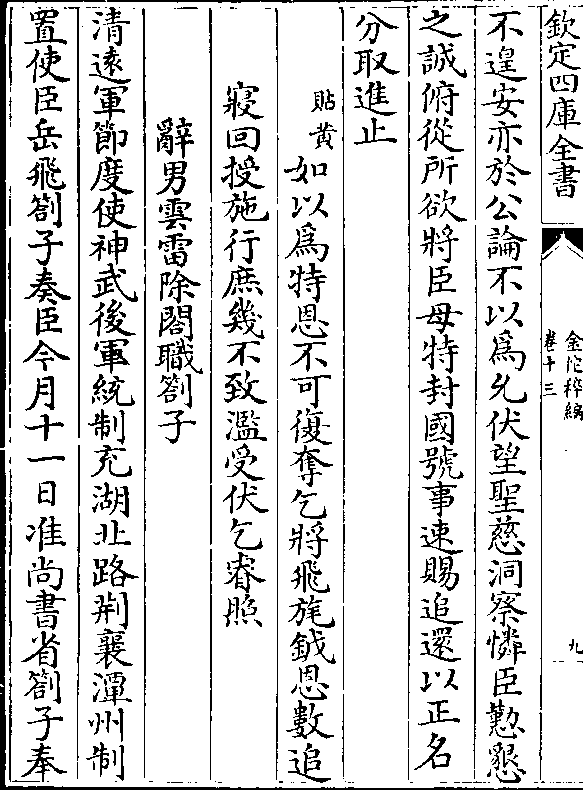 欽定四庫全書
金佗稡編
卷十三
九
不遑安亦於公論不以為允伏望聖慈洞察憐臣懃懇
之誠俯從所欲將臣母特封國號事速賜追還以正名
分取進止
貼黃
如以為特恩不可復奪乞將飛旄鉞恩數追
寢回授施行庶幾不致濫受伏乞睿照
辭男雲雷除閣職劄子
清遠軍節度使神武後軍統制充湖北路荆襄潭州制
置使臣岳飛劄子奏臣今月十一日准尚書省劄子奉